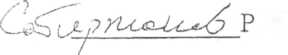 Сабиржанов Р